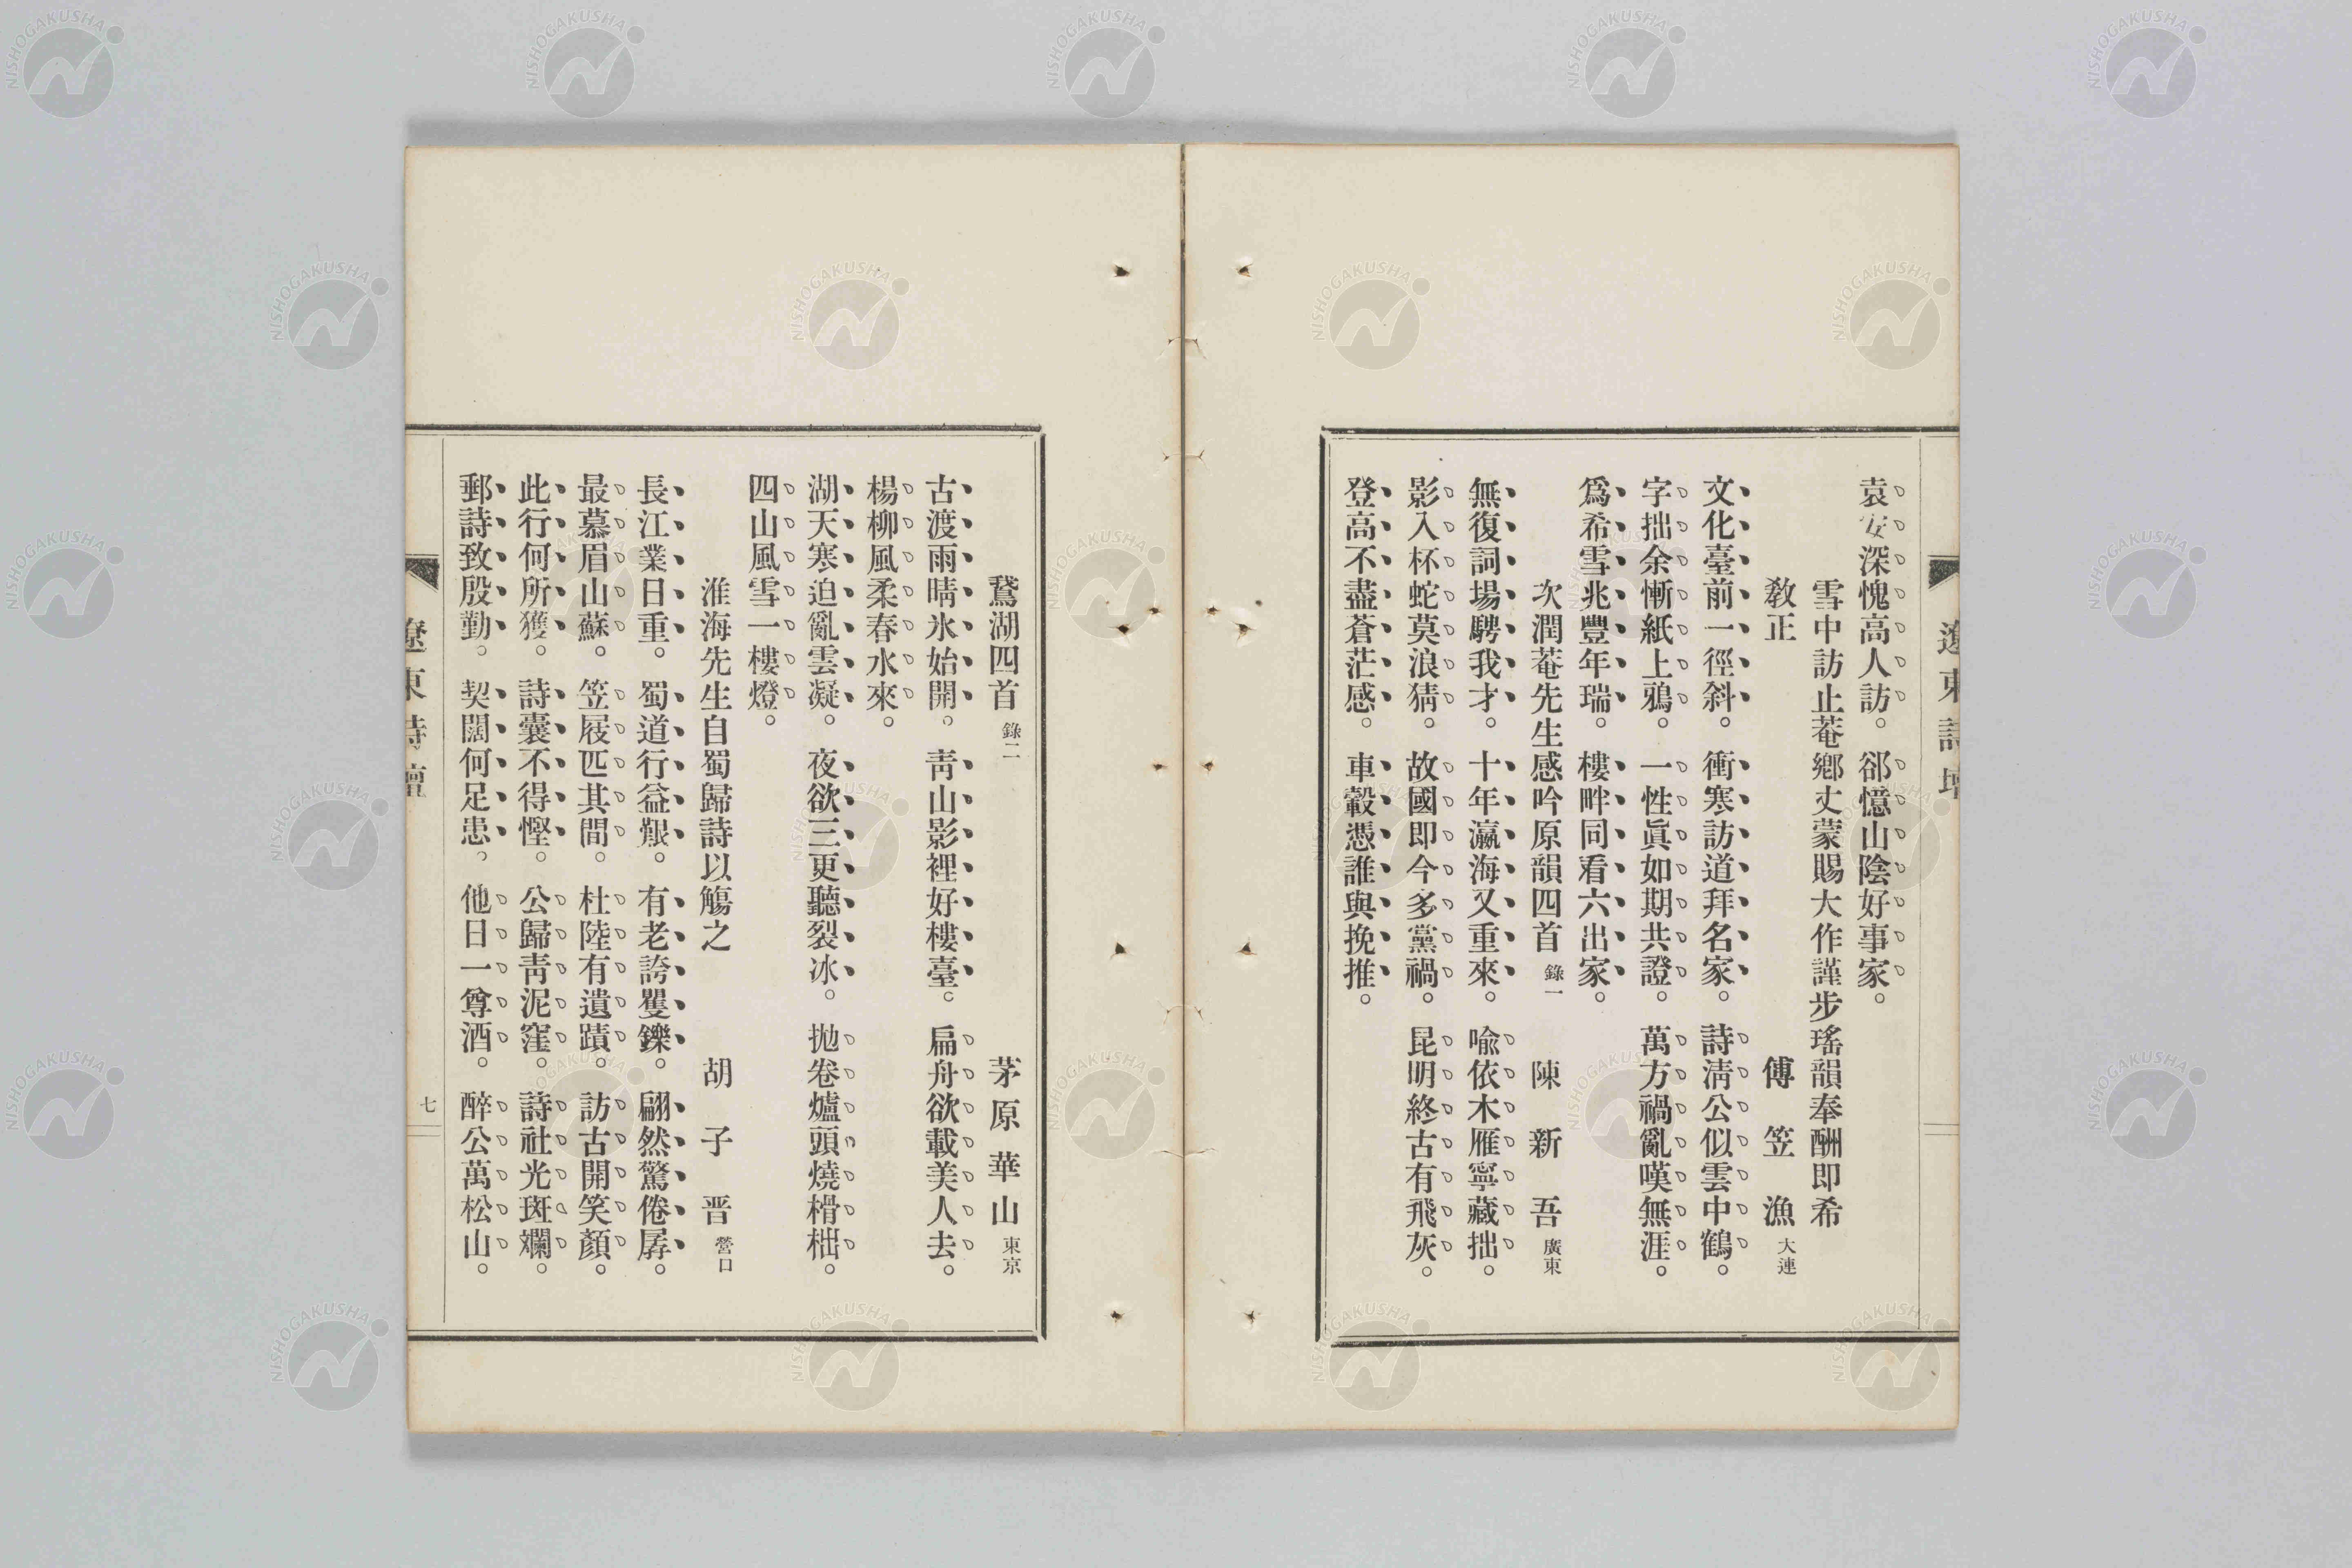 遼東詩壇
袁安深愧高人訪。郤憶山陰好事家。
雪中訪止菴鄉丈蒙賜大作謹步瑤韻奉酬即希
敎正　傅笠漁 大連
文化臺前一徑斜。衝寒訪道拜名家。詩淸公似雲中鶴。
字拙余慚紙上鴉。一性眞如期共證。萬方禍亂嘆無涯。
爲希雪兆豐年瑞。樓畔同看六出家。
次潤菴先生感吟原韻四首 錄一　陳新吾 廣東
無復詞場騁我才。十年瀛海又重來。喩依木雁寧藏拙。
影入杯蛇莫浪猜。故國即今多黨禍。昆明終古有飛灰。
登高不盡蒼茫感。車轂憑誰與挽推。
鵞湖四首 錄二　茅原華山 東京
古渡雨晴氷始開。靑山影裡好樓臺。扁舟欲載美人去。
楊柳風柔春水來。
湖天寒迫亂雲凝。夜欲三更聽裂冰。拋卷爐頭燒榾柮。
四山風雪一樓燈。
淮海先生自蜀歸詩以觴之　胡子晋 營口
長江業日重。蜀道行益艱。有老誇矍鑠。翩然驚倦孱。
最慕眉山蘇。笠屐匹其間。杜陸有遺蹟。訪古開笑顏。
此行何所獲。詩囊不得慳。公歸靑泥窪。詩社光斑斕。
郵詩致殷勤。契闊何足患。他日一尊酒。醉公萬松山。
遼東詩壇
七
NISHOGAKUSHA